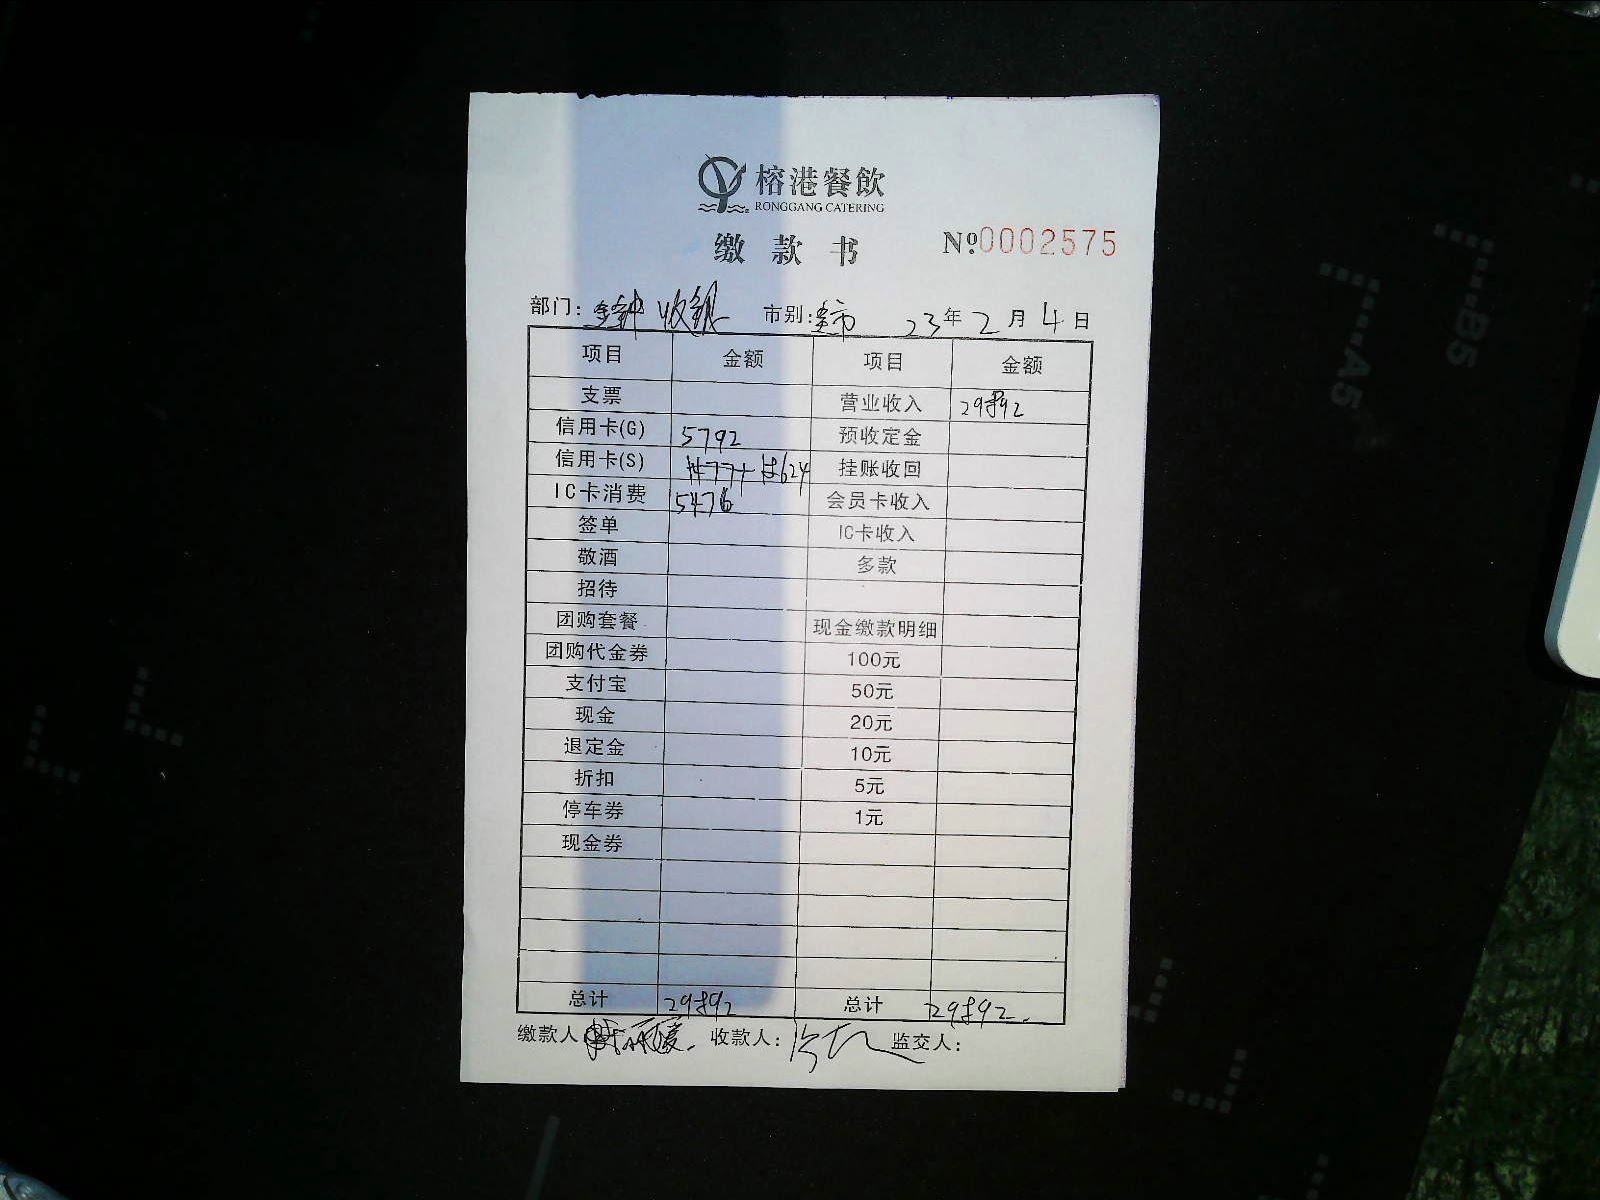 榕港餐飲
RONGGANG CATERING
缴款书 №0002575
部门: 金钟 收银 市别: 23年2月4日
项目 金额 项目 金额
支票 营业收入
信用卡(G) 5792 预收定金
信用卡(S) 挂账收回
IC卡消费 5476 会员卡收入
签单 IC卡收入
敬酒 多款
招待
团购套餐 现金缴款明细
团购代金券 100元
支付宝 50元
现金 20元
退定金 10元
折扣 5元
停车券 1元
现金券
总计 总计
缴款人 收款人: 监交人:
A5
B5